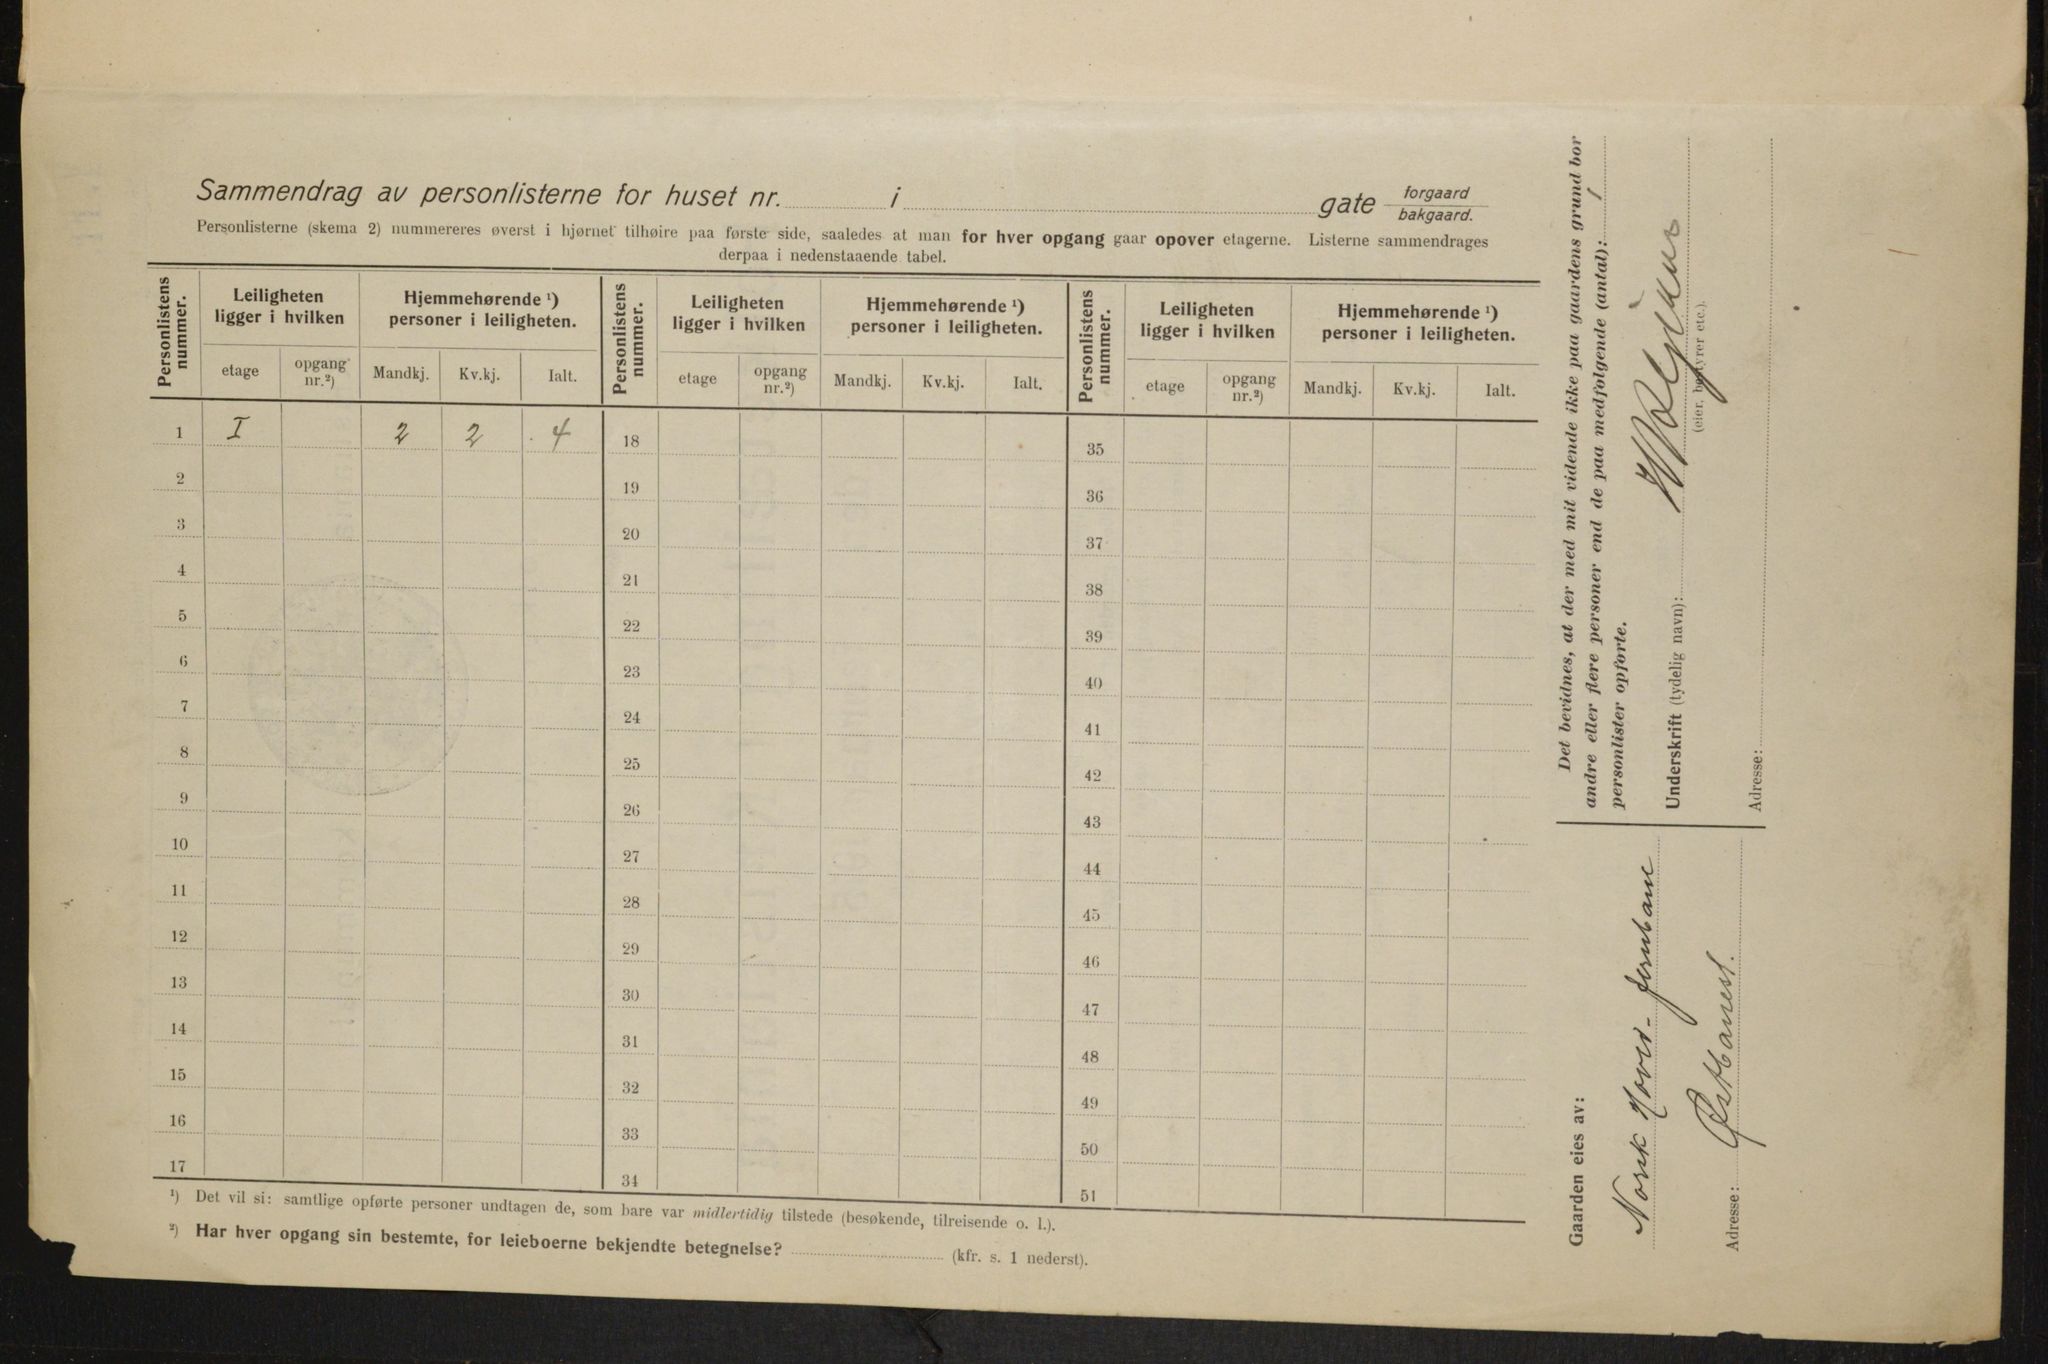 Sammendrag av personlisterne for huset nr. i gate forgaard
bakgaard.
Personlisterne (skema 2) nummereres øverst i hjørnet tilhøire paa første side, saaledes at man for hver opgang gaar opover etagerne. Listerne sammendrages
derpaa i nedenstaaende tabel.
Personlistens nummer. Leiligheten ligger i hvilken Hjemmehørende ¹) personer i leiligheten. Personlistens nummer. Leiligheten ligger i hvilken Hjemmehørende ¹) personer i leiligheten. Personlistens nummer. Leiligheten ligger i hvilken Hjemmehørende ¹) personer i leiligheten.
etage opgang nr.²) Mandkj. Kv.kj. Ialt. etage opgang nr.²) Mandkj. Kv.kj. Ialt. etage opgang nr.²) Mandkj. Kv.kj. Ialt.
1 I 2 2 4 18 35
2 19 36
3 20 37
4 21 38
5 22 39
6 23 40
7 24 41
8 25 42
9 26 43
10 27 44
11 28 45
12 29 46
13 30 47
14 31 48
15 32 49
16 33 50
17 34 51
¹) Det vil si: samtlige opførte personer undtagen de, som bare var midlertidig tilstede (besøkende, tilreisende o. l.).
²) Har hver opgang sin bestemte, for leieboerne bekjendte betegnelse? (kfr. s. 1 nederst).
Det bevidnes, at der med mit vidende ikke paa gaardens grund bor
andre eller flere personer end de paa medfølgende (antal): 1
personlister opførte.
Underskrift (tydelig navn):
(eier, bestyrer etc.).
Adresse:
Gaarden eies av:
Norsk Hoved-Jernbane
Adresse: Østbanest.